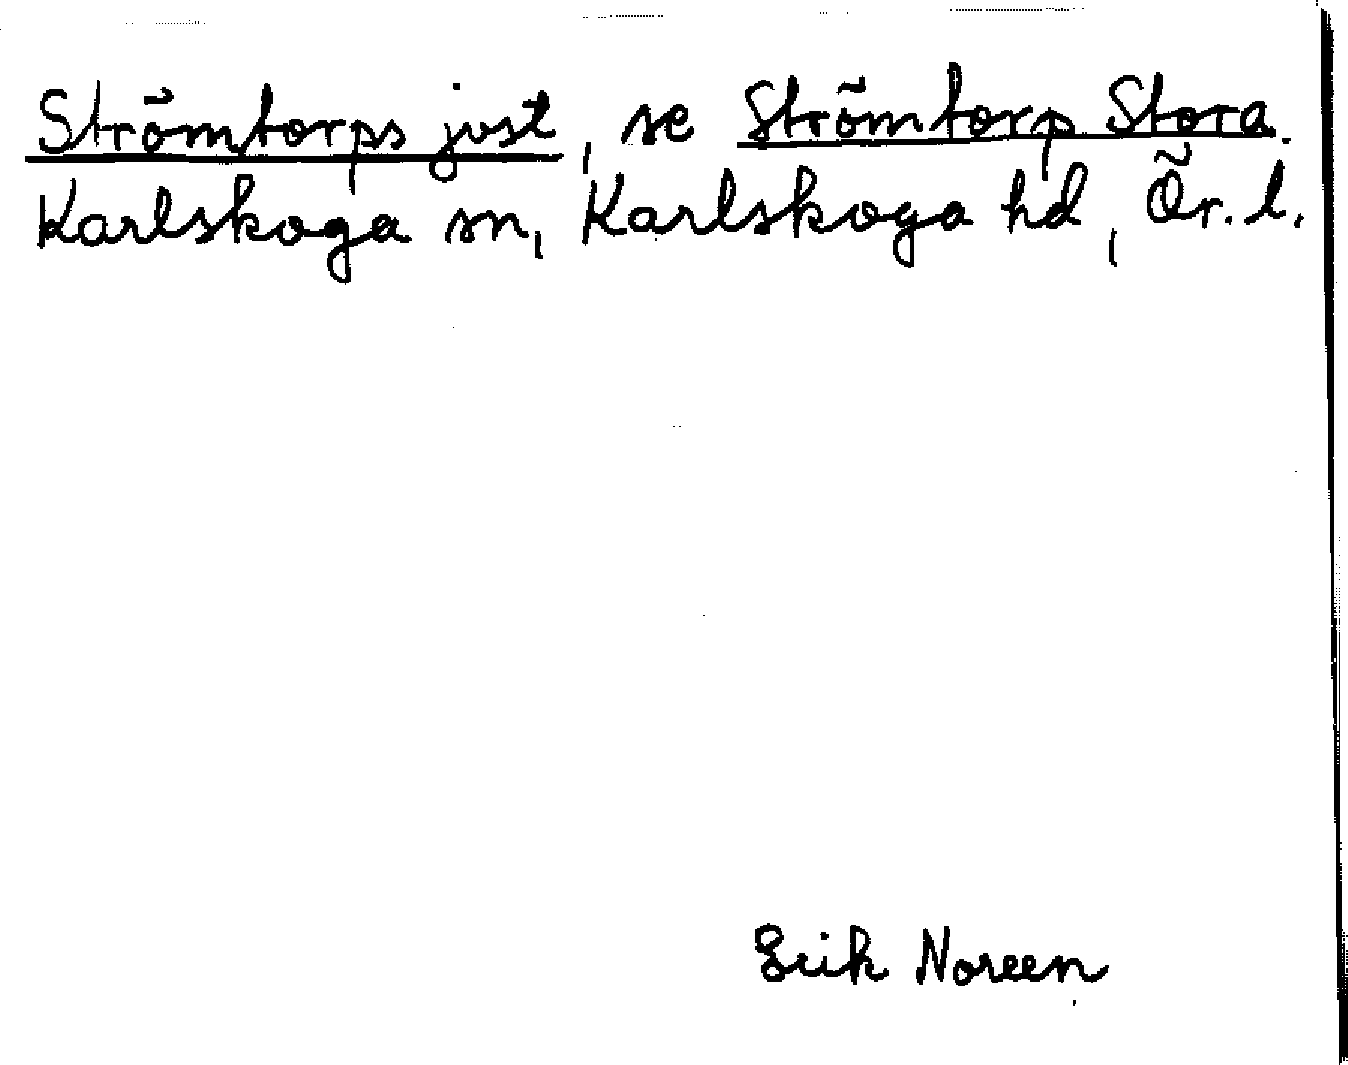 Strömtorps just, se Strömtorp Stora.
Karlskoga sn, Karlskoga hd, Ör. l.
Erik Noreen